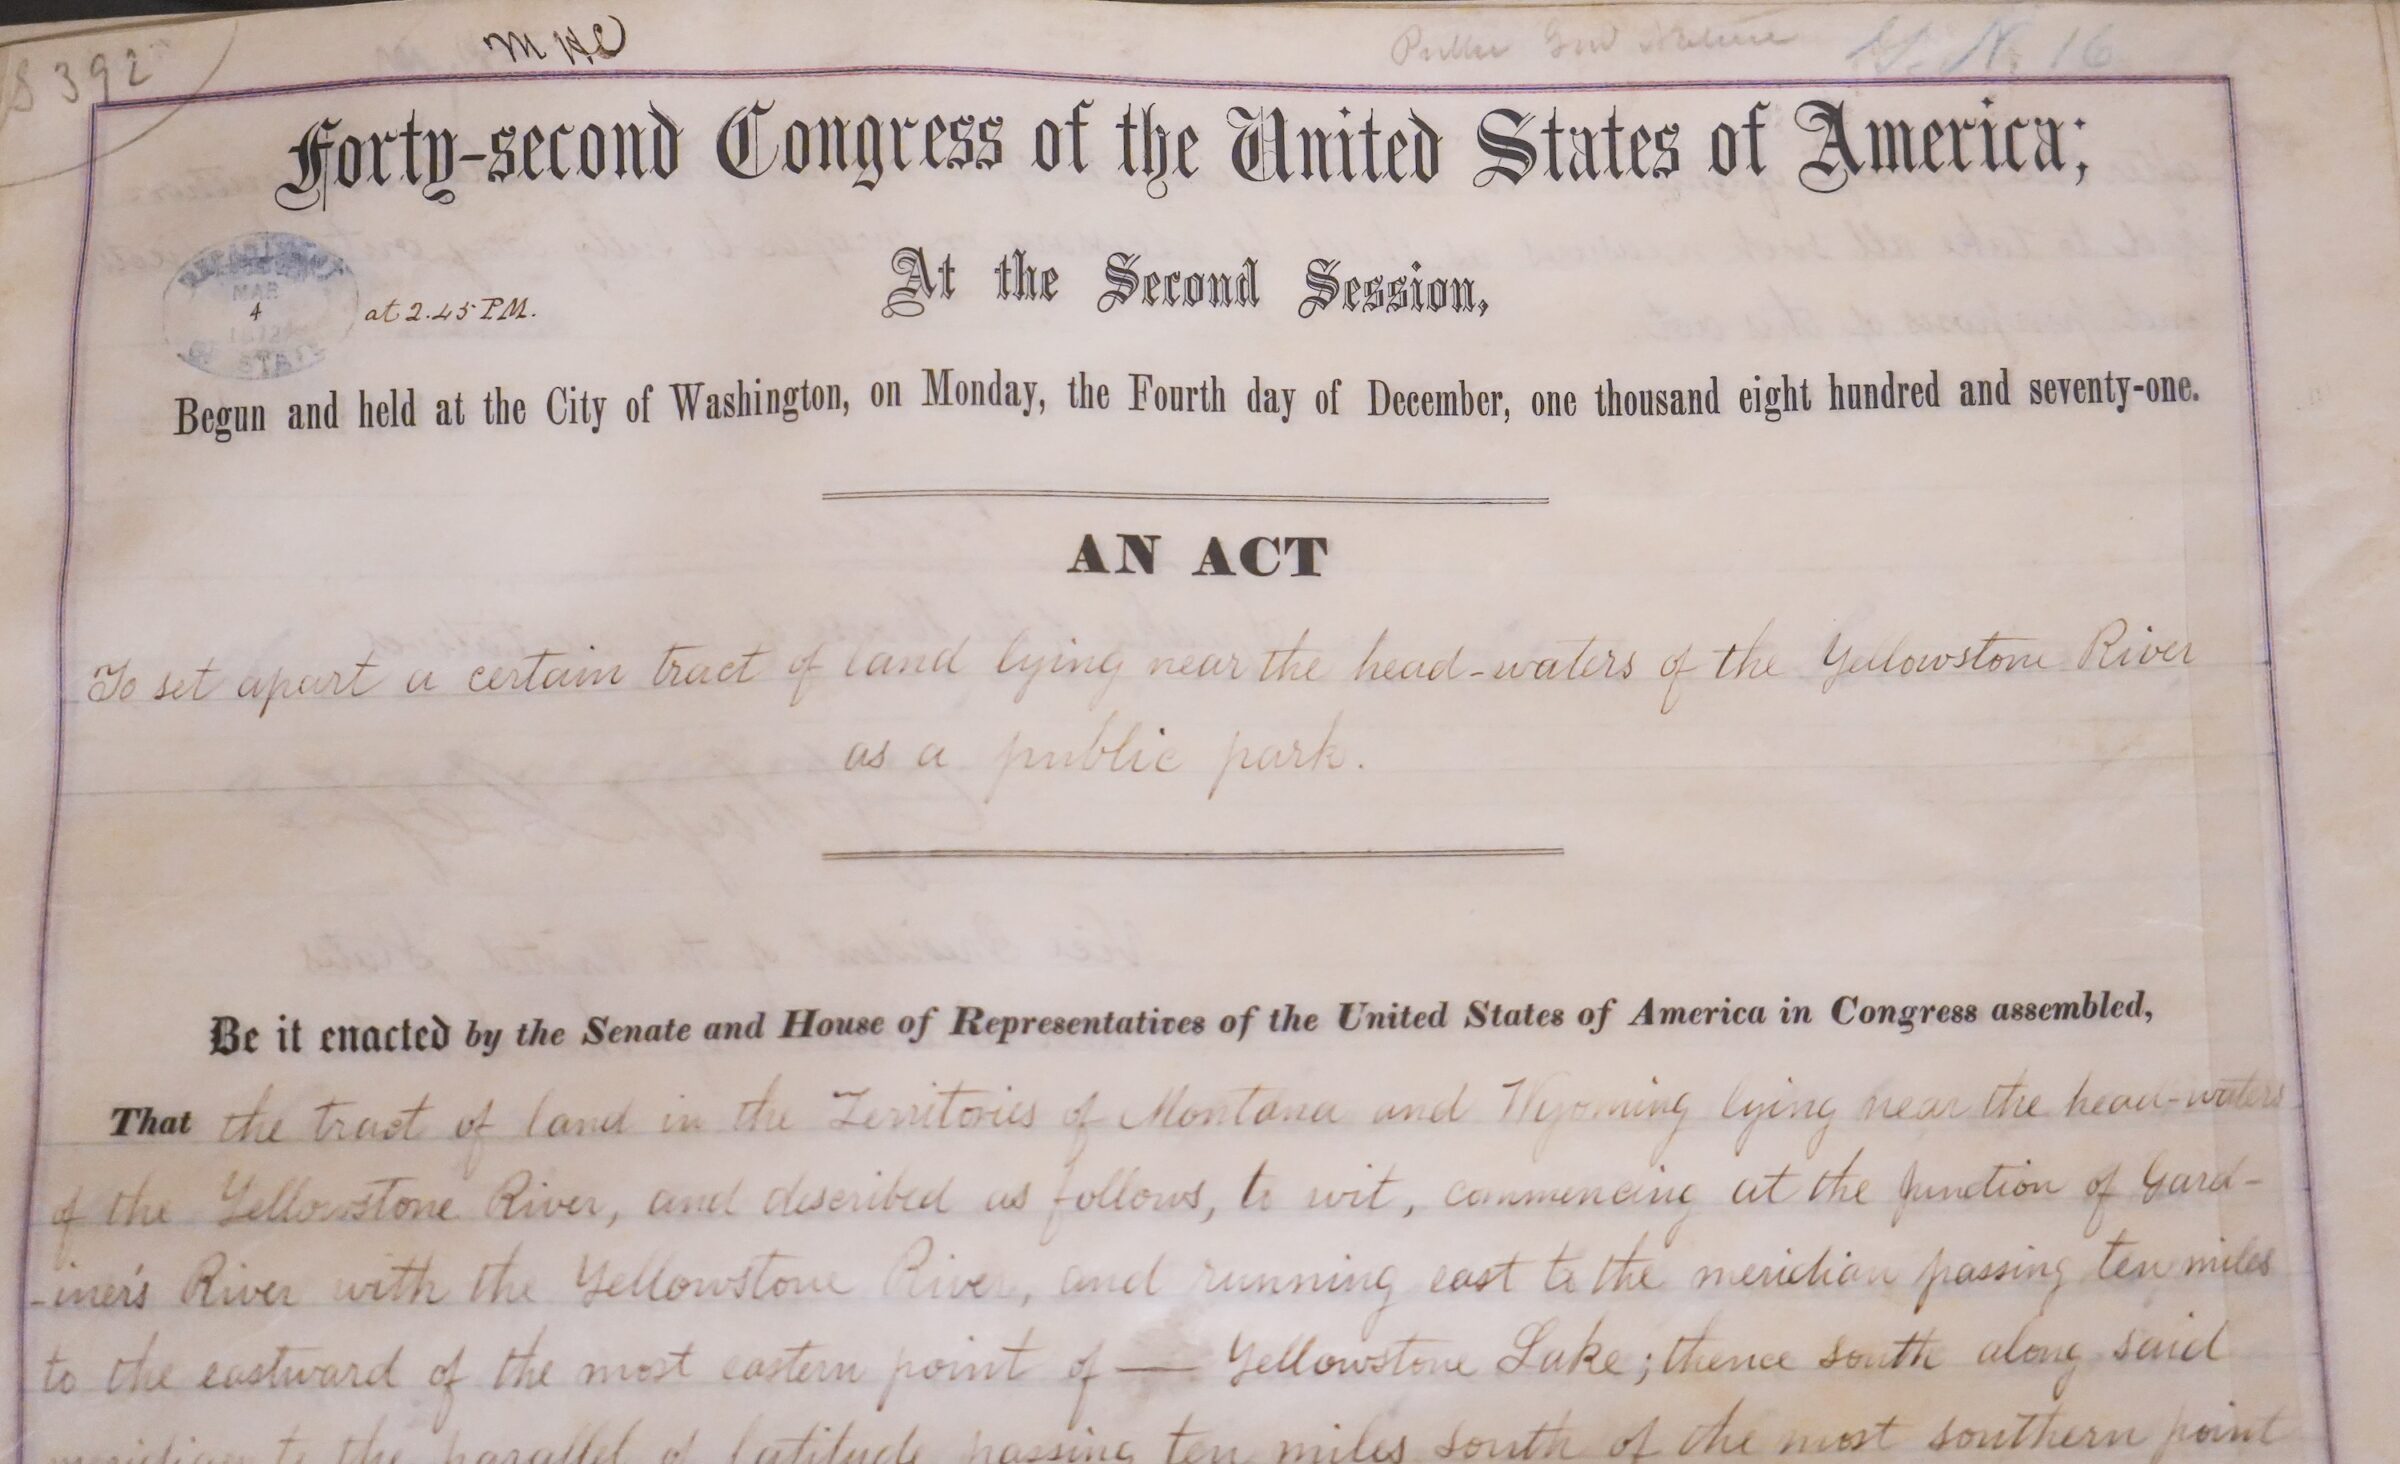 S 392
M HC
G. N. 16
Forty-second Congress of the United States of America;
At the Second Session,
MAR
4
at 2.45 P.M.
Begun and held at the City of Washington, on Monday, the Fourth day of December, one thousand eight hundred and seventy-one.
AN ACT
To set apart a certain tract of land lying near the head-waters of the Yellowstone River
as a public park.
Be it enacted by the Senate and House of Representatives of the United States of America in Congress assembled,
That the tract of land in the Territories of Montana and Wyoming lying near the head-waters
of the Yellowstone River, and described as follows, to wit, commencing at the junction of Gard-
-iner's River with the Yellowstone River, and running east to the meridian passing ten miles
to the eastward of the most eastern point of — Yellowstone Lake; thence south along said
meridian to the parallel of latitude passing ten miles south of the most southern point